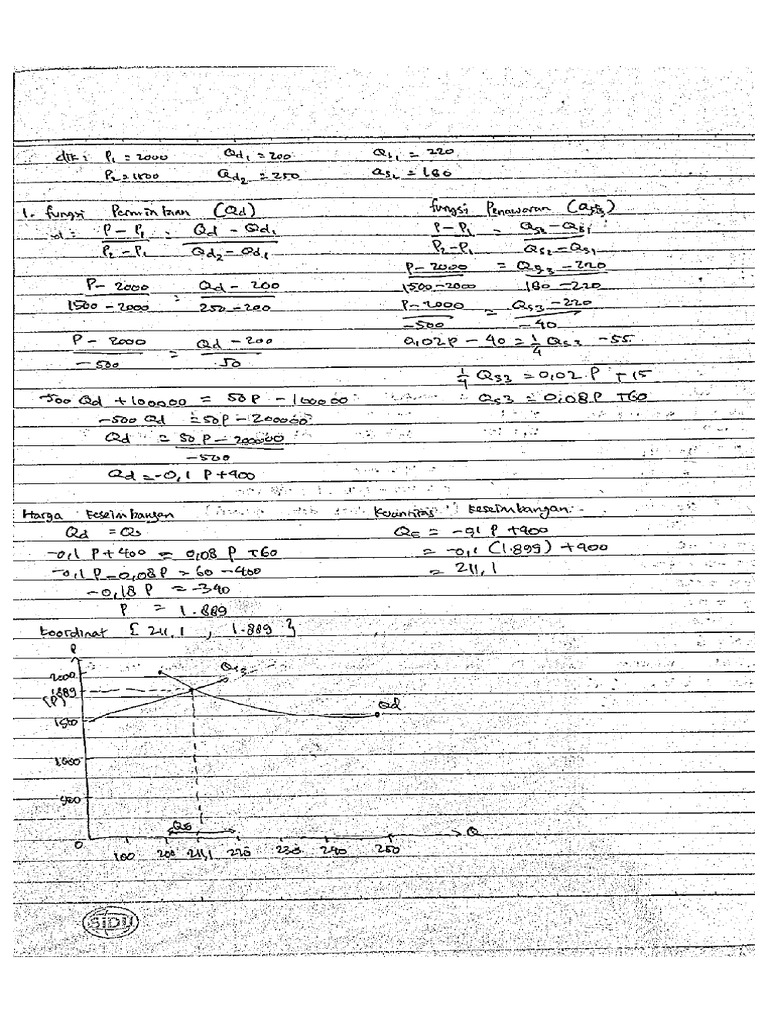 dik : P1 = 2000 Qd1 = 200 Qs1 = 220
P2 = 1500 Qd2 = 250 Qs2 = 180
1. fungsi Permintaan (Qd)
d: P – P1 / P2 – P1 = Qd – Qd1 / Qd2 – Qd1
P – 2000 / 1500 – 2000 = Qd – 200 / 250 – 200
P – 2000 / –500 = Qd – 200 / 50
–500 Qd + 100000 = 50P – 100000
–500 Qd = 50P – 200000
Qd = 50P – 200000 / –500
Qd = –0,1 P + 400
fungsi Penawaran (Qs3)
P – P1 / P2 – P1 = Qs3 – Qs1 / Qs2 – Qs1
P – 2000 / 1500 – 2000 = Qs3 – 220 / 180 – 220
P – 2000 / –500 = Qs3 – 220 / –40
0,02P – 40 = 1/4 Qs3 – 55
1/4 Qs3 = 0,02 P + 15
Qs3 = 0,08P + 60
Harga keseimbangan
Qd = Qs
–0,1 P + 400 = 0,08 P + 60
–0,1 P – 0,08P = 60 – 400
–0,18 P = –340
P = 1.889
Kuantitas keseimbangan
QE = –0,1 P + 400
= –0,1 (1.899) + 400
= 211,1
Koordinat { 211,1 , 1.889 }
P
2000
1889
(P)
1500
1000
Qs3
Qd
QE
0 100 200 211,1 220 230 240 250 Q
SIDU